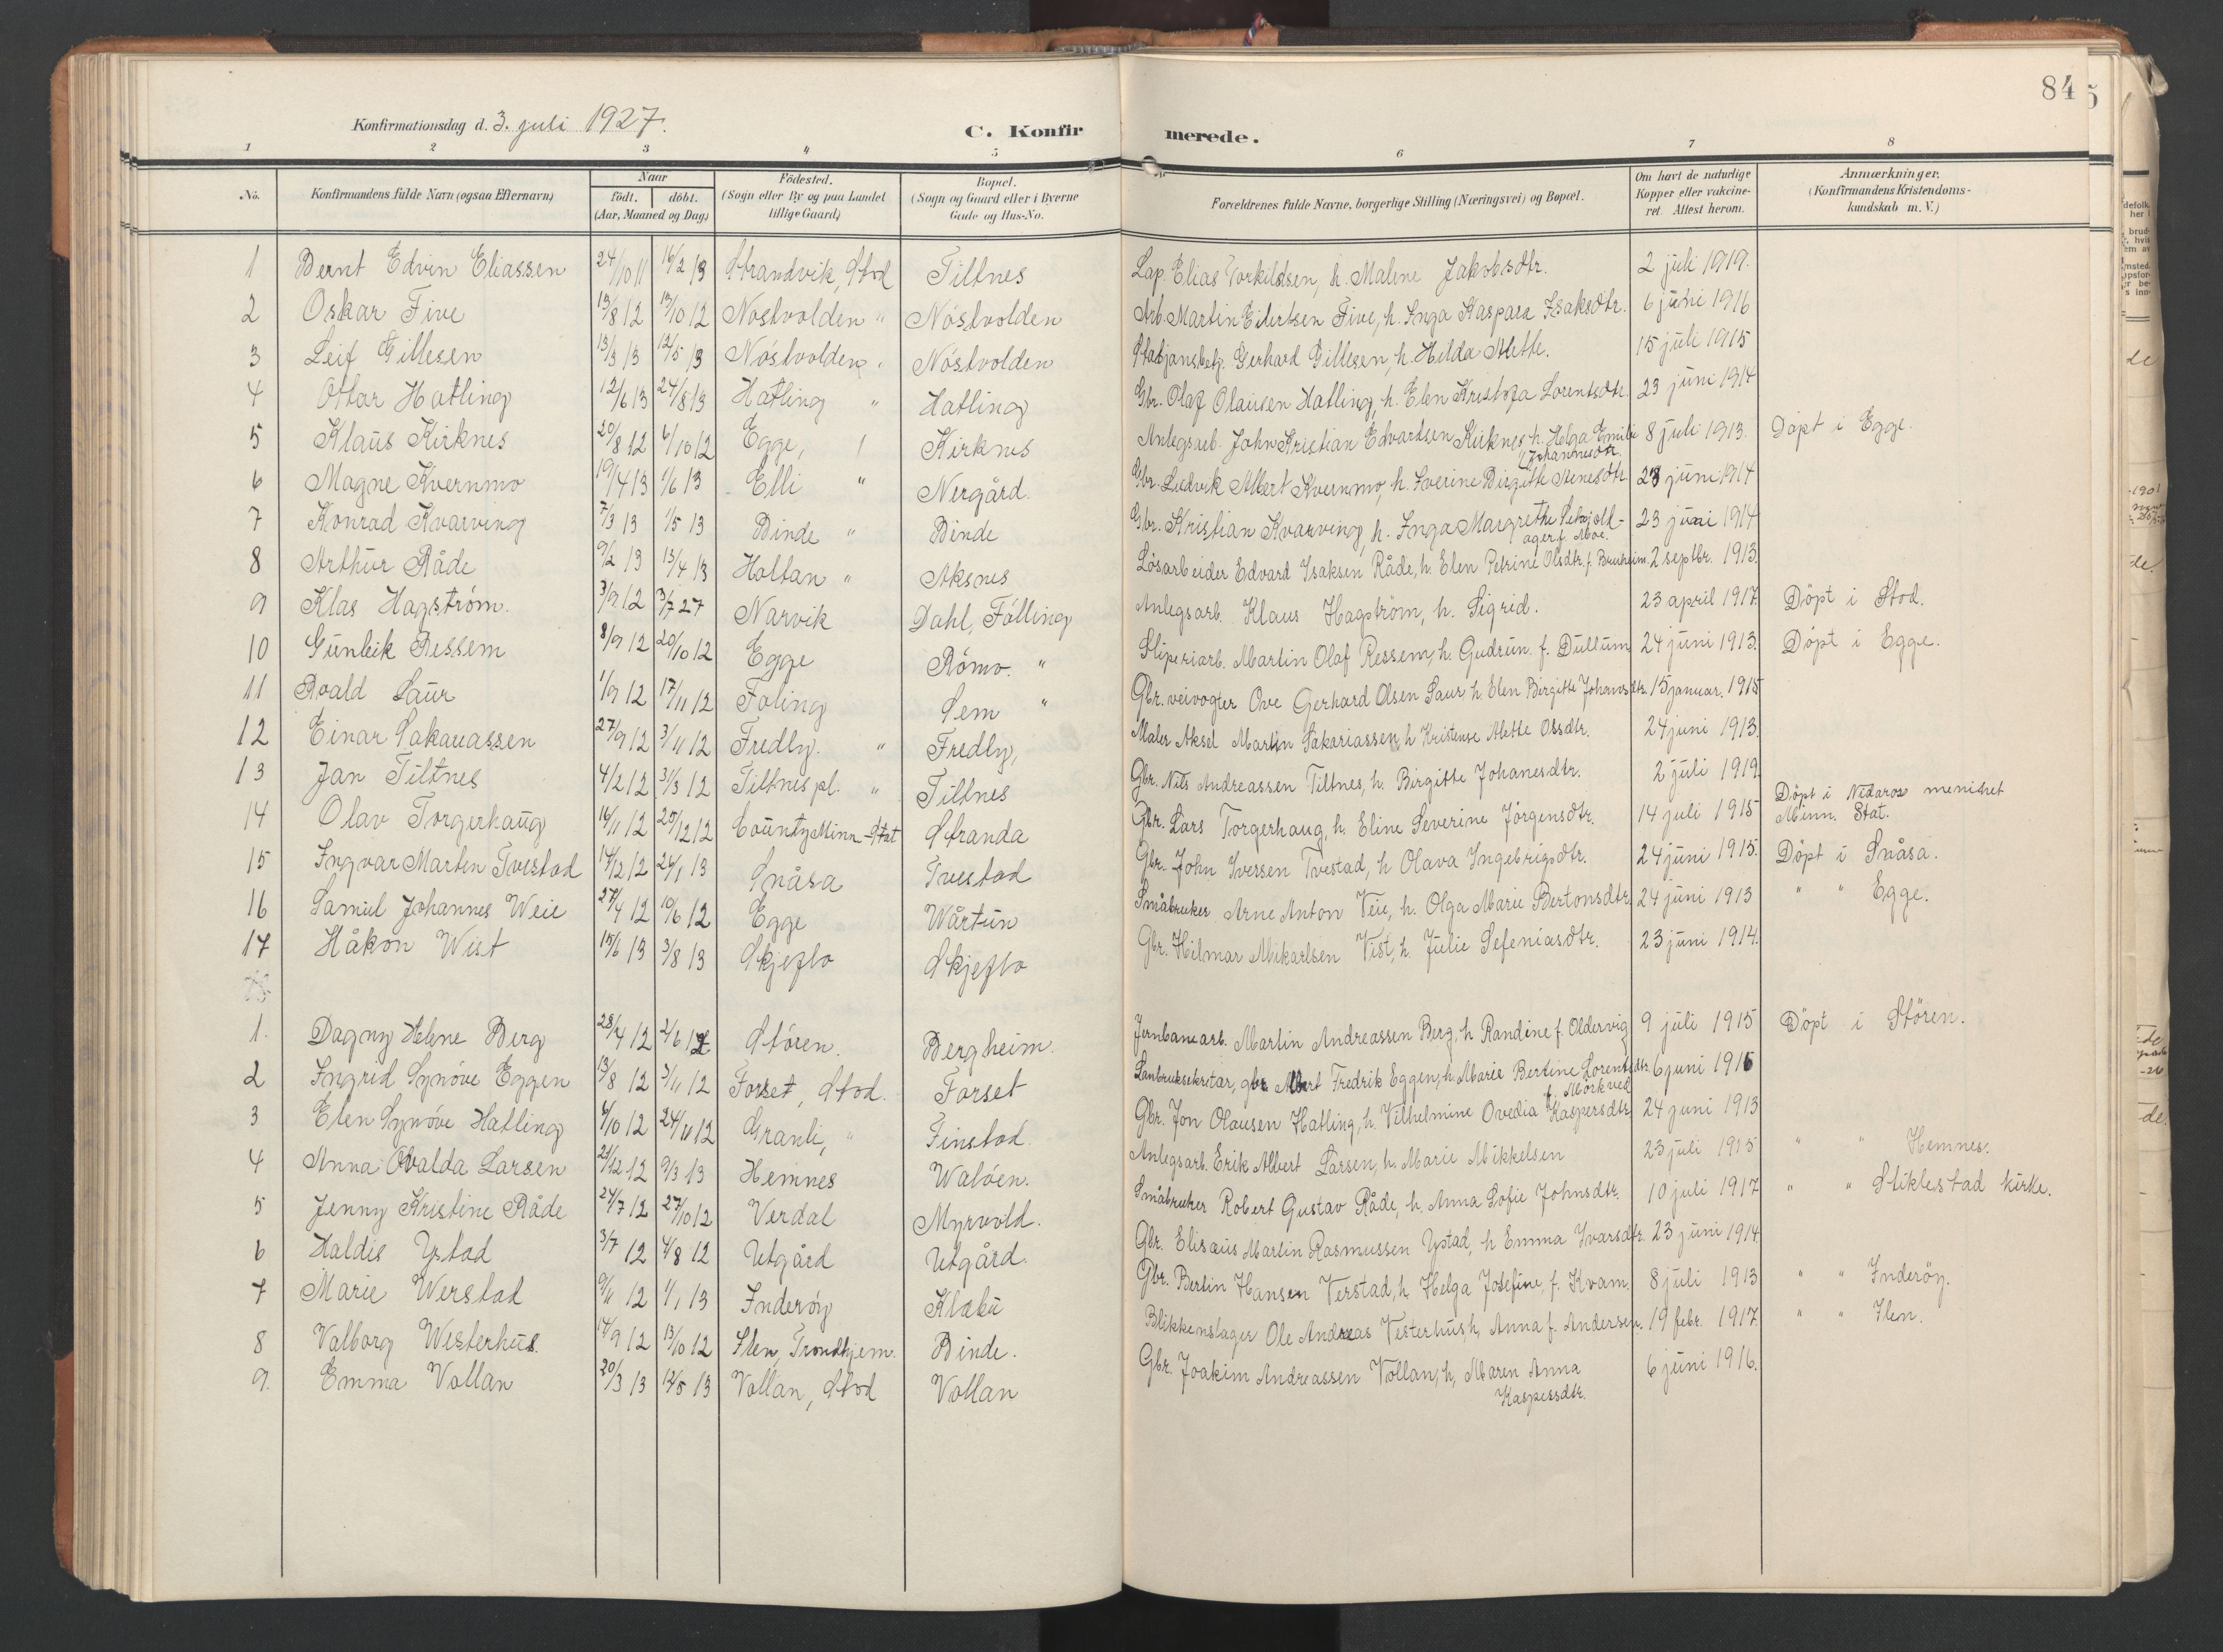 84
Konfirmationsdag d. 3. juli 1927.
C. Konfirmerede.
1 2 3 4 5 6 7 8
No. Konfirmandens fulde Navn (ogsaa Efternavn) Naar födt. döbt. (Aar, Maaned og Dag) Födested. (Sogn eller By og paa Landet tillige Gaard) Bopæl. (Sogn og Gaard eller i Byerne Gade og Hus-No. Forældrenes fulde Navne, borgerlige Stilling (Næringsvei) og Bopæl. Om havt de naturlige Kopper eller vakcineret. Attest herom. Anmærkninger. (Konfirmandens Kristendomskundskab m. V.)
1 Bernt Edvin Eliassen 24/10 11 16/2 13 Strandvik, Stod Tiltnes Lap. Elias Torkildsen, h. Malene Jakobsdtr. 2 juli 1919.
2 Oskar Five 13/8 12 13/10 12 Nöstvolden " Nöstvolden Arb. Martin Eilertsen Five, h. Inga Kaspara Isaksdtr. 6 juni 1916
3 Leif Gillesen 13/3 13 12/5 13 Nöstvolden " Nöstvolden Stasjonsbetj. Gerhard Gillesen, h. Hilda Alette. 15 juli 1915
4 Ottar Hatling 12/6 13 24/8 13 Hatling " Hatling Gbr. Olaf Olausen Hatling, h. Elen Kristofa Lorentsdtr. 23 juni 1914
5 Klaus Kirknes 20/8 12 6/10 12 Egge, Kirknes Anlegsarb. John Kristian Edvardsen Kirknes h. Helga Emilie Johannesdtr. 8 juli 1913. Döpt i Egge.
6 Magne Kvernmo 19/4 13 1/6 13 Elli " Nergård. Gbr. Ludvik Albert Kvernmo, h. Sverine Birgitte Stenesdtr. 23 juni 1914
7 Konrad Kvarving 7/3 13 1/5 13 Binde " Binde Gbr. Kristian Kvarving, h. Inga Margrethe f. Moe. 23 juni 1914
8 Arthur Råde 9/2 13 13/4 13 Holtan " Aksnes Lösarbeider Edvard Isaksen Råde, h. Elen Petrine Olsdtr. f. Bruheim. 2 septbr. 1913.
9 Klas Hagström. 3/9 12 3/7 27 Narvik Dahl, Fölling Anlegsarb. Klaus Hagström, h. Sigrid. 23 april 1917. Döpt i Stod.
10 Gunleik Ressem 8/9 12 20/10 12 Egge Römo. " Sliperiarb. Martin Olaf Ressem, h. Gudrun f. Dullum 24 juni 1913. Döpt i Egge.
11 Roald Saur 1/9 12 17/11 12 Foling Sem " Gbr. veivogter Ove Gerhard Olsen Saur h. Elen Birgitte Johansdtr. 15 januar. 1915
12 Einar Sakariassen 27/9 12 3/11 12 Fredly. " Fredly, Maler Aksel Martin Sakariassen, h. Kristense Alette Olsdtr. 24 juni 1913.
13 Jan Tiltnes 4/2 12 31/3 12 Tiltnes pl. " Tiltnes Gbr. Nils Andreassen Tiltnes, h. Birgitte Johanesdtr. 2 juli 1919
14 Olav Torgerhaug 16/11 12 25/12 12 County Minn. Stat Stranda Gbr. Lars Torgerhaug, h. Eline Severine Jörgensdtr. 14 juli 1915 Döpt i Nidaros menichet Minn. Stat.
15 Ingvar Marten Tvestad 14/12 12 26/1 13 Snåsa Tvestad Gbr. John Iversen Tvestad, h Olava Ingebrigsdtr. 24 juni 1915. Döpt i Snåsa.
16 Samuel Johannes Weie 27/4 12 10/6 12 Egge Wårtun Småbruker Arne Anton Veie, h. Olga Marie Bertonsdtr. 24 juni 1913 " " Egge.
17 Håkon Wist 15/6 13 3/8 13 Skjeflo Skjeflo Gbr. Hilmar Mikarlsen Vist, h. Julie Sefeniasdtr. 23 juni 1914.
1. Dagny Helene Berg 28/4 12 2/6 12 Stören. Bergheim. Jernbanearb. Martin Andreassen Berg, h. Randine f. Oldervig 9 juli 1915 Döpt i Stören.
2 Ingrid Synöve Eggen 13/8 12 3/11 12 Forset, Stod. Forset Lanbruksekretær, gbr. Albert Fredrik Eggen, h. Marie Bertine Lorentsdtr. f. Mörkved 6 juni 1916
3 Elen Synöve Hatling 4/10 12 24/11 12 Granli, " Finstad. Gbr. Jon Olausen Hatling, h. Vilhelmine Ovedia Kaspersdtr 24 juni 1913
4 Anna Ovalda Larsen 21/12 12 9/3 13 Hemnes Walöen. Anlegsarb. Erik Albert Larsen, h. Marie Mikkelsen 23 juli 1915 " " Hemnes.
5 Jenny Kristine Råde 24/7 12 27/10 12 Verdal Myrvold. Småbruker Robert Gustav Råde, h. Anna Sofie Johnsdtr. 10 juli 1917 " " Stiklestad kirke.
6 Haldis Ystad 3/7 12 4/8 12 Utgård Utgård. Gbr. Elisæus Martin Rasmussen Ystad, h Emma Ivarsdtr. 23 juni 1914
7 Marie Werstad 9/11 12 1/1 13 Inderöy Klæbu Gbr. Bertin Hansen Verstad, h Helga Josefine, f. Kvam. 8 juli 1913 " " Inderöy.
8 Valborg Westerhus. 14/9 12 13/10 12 Ilen, Trondhjem. Binde. Blikkenslager Ole Andreas Vesterhus, h. Anna f. Andersen. 19 febr. 1917. " " Ilen.
9. Emma Vollan 20/3 13 12/5 13 Vollan, Stod Vollan Gbr. Joakim Andreassen Vollan, h, Maren Anna Kaspersdtr. 6 juni 1916.